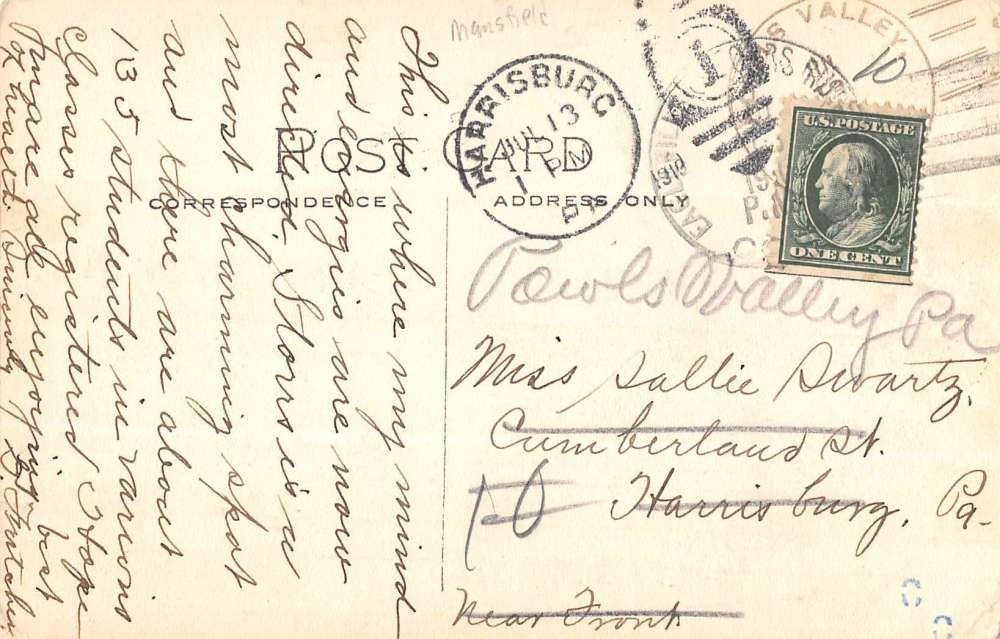 Mansfield
POST CARD
CORRESPONDENCE
ADDRESS ONLY
HARRISBURG
JUL 13
1 PM
PA
1
S VALLEY
EAGLEVILLE
1910
P.M.
10
U.S. POSTAGE
ONE CENT
Powls Valley Pa
Miss Sallie Swartz,
Cumberland St.
Harrisburg, Pa-
Near Front
10
This is where my mind
and energies are now
directed. Storrs is a
most charming spot
and there are about
135 students in various
classes registered. Hope
you are all enjoying best
of health. Sincerely